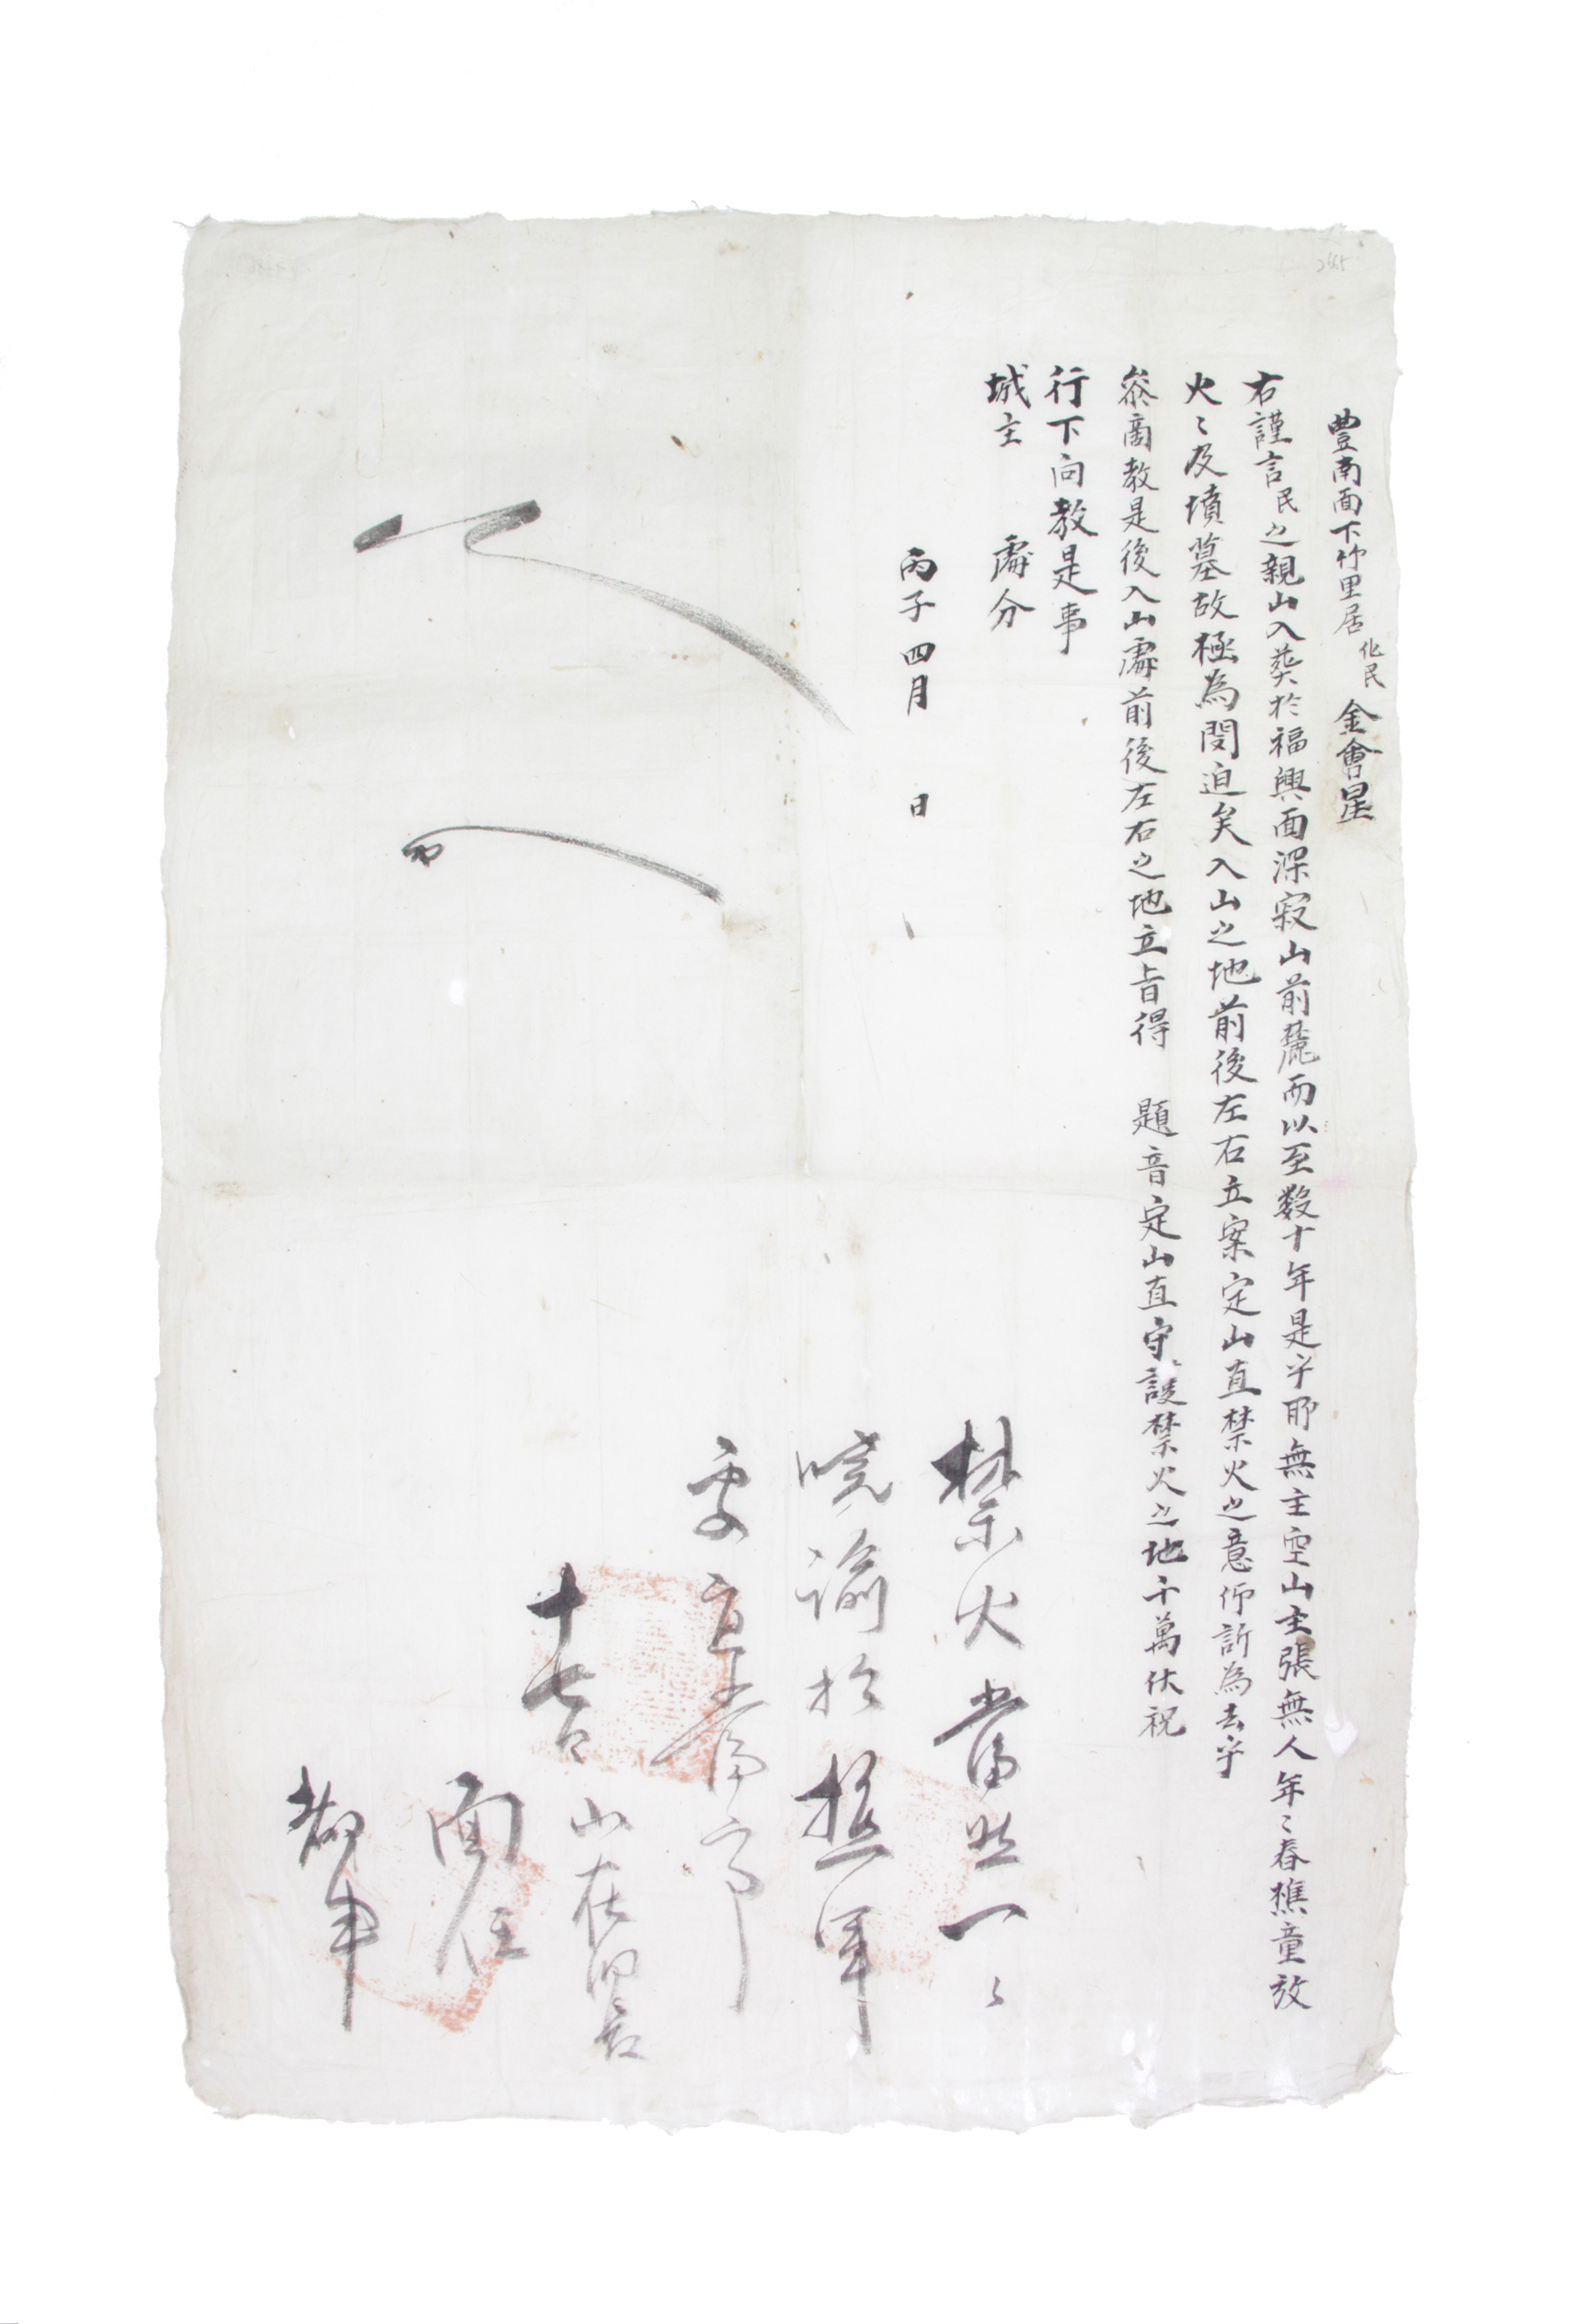 豊南面下竹里居化民金會星
右謹言民之親山入葬於福興面深寂山前麓而以至数十年是乎耶無主空山主張無人年〻春樵童放
火〻及墳墓故極為閔迫矣入山之地前後左右立案定山直禁火之意仰訴為去乎
叅商教是後入山處前後左右之地立旨得 題音定山直守護禁火之地千萬伏祝
行下向教是事
城主 處分
丙子四月 日
禁火當然一〻
曉諭於樵軍
要宜
十七日
山在洞
面任
2665